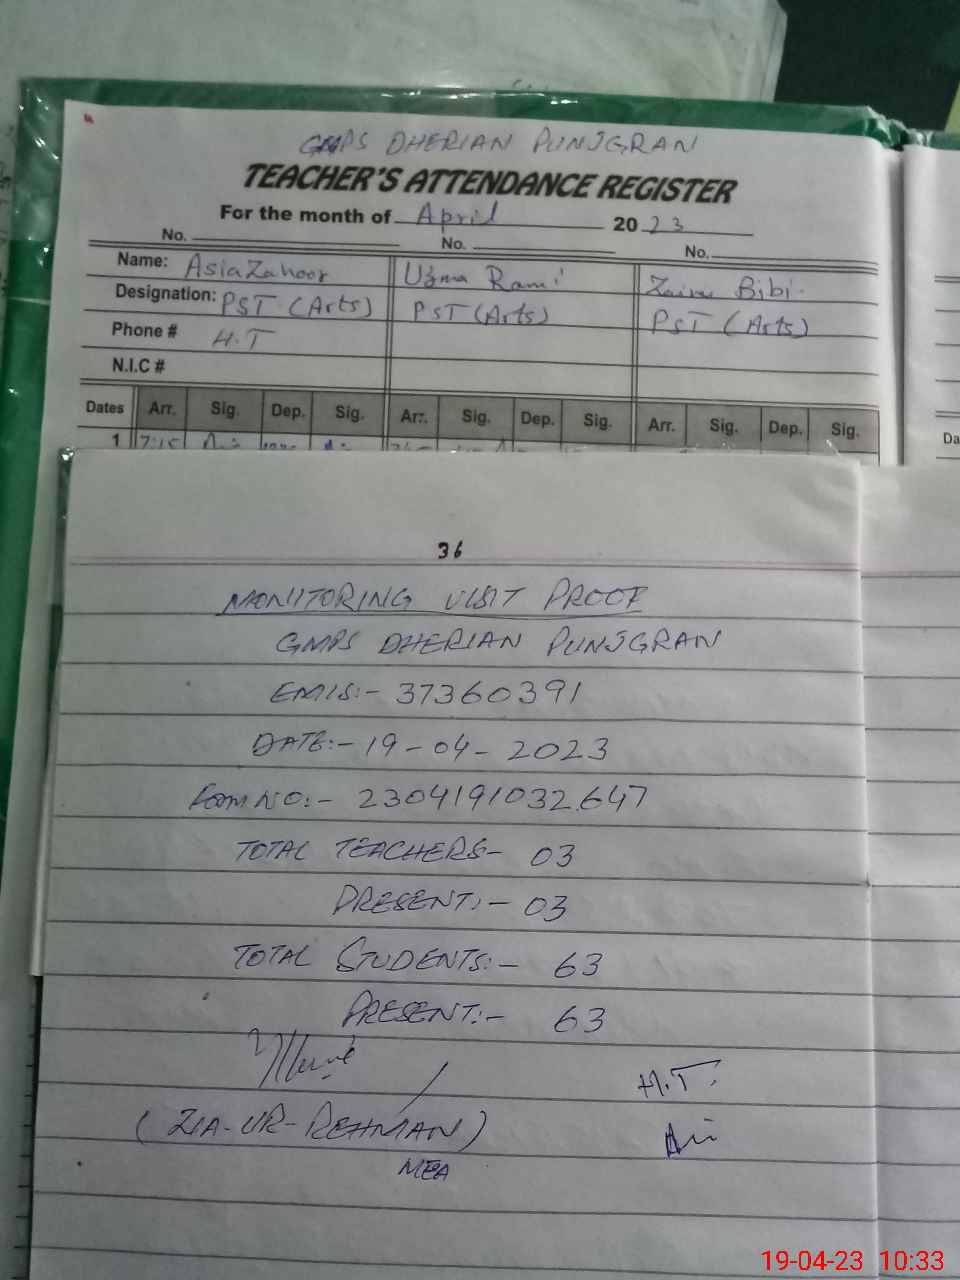 GMPS DHERIAN PUNJGRAN
TEACHER'S ATTENDANCE REGISTER
For the month of April 2023
No. No. No.
Name: Asia Zahoor Uzma Rani Bibi
Designation: PST (Arts) PST (Arts) PST (Arts)
Phone # H.T
N.I.C #
Dates Arr. Sig. Dep. Sig. Arr. Sig. Dep. Sig. Arr. Sig. Dep. Sig.
1 7:15
Da
36
MONITORING VISIT PROOF
GMPS DHERIAN PUNJGRAN
EMIS:- 37360391
DATE:- 19-04-2023
Form NO:- 2304191032647
TOTAL TEACHERS- 03
PRESENT:- 03
TOTAL STUDENTS:- 63
PRESENT:- 63
H.T.
(ZIA-UR-REHMAN)
MEA
19-04-23 10:33